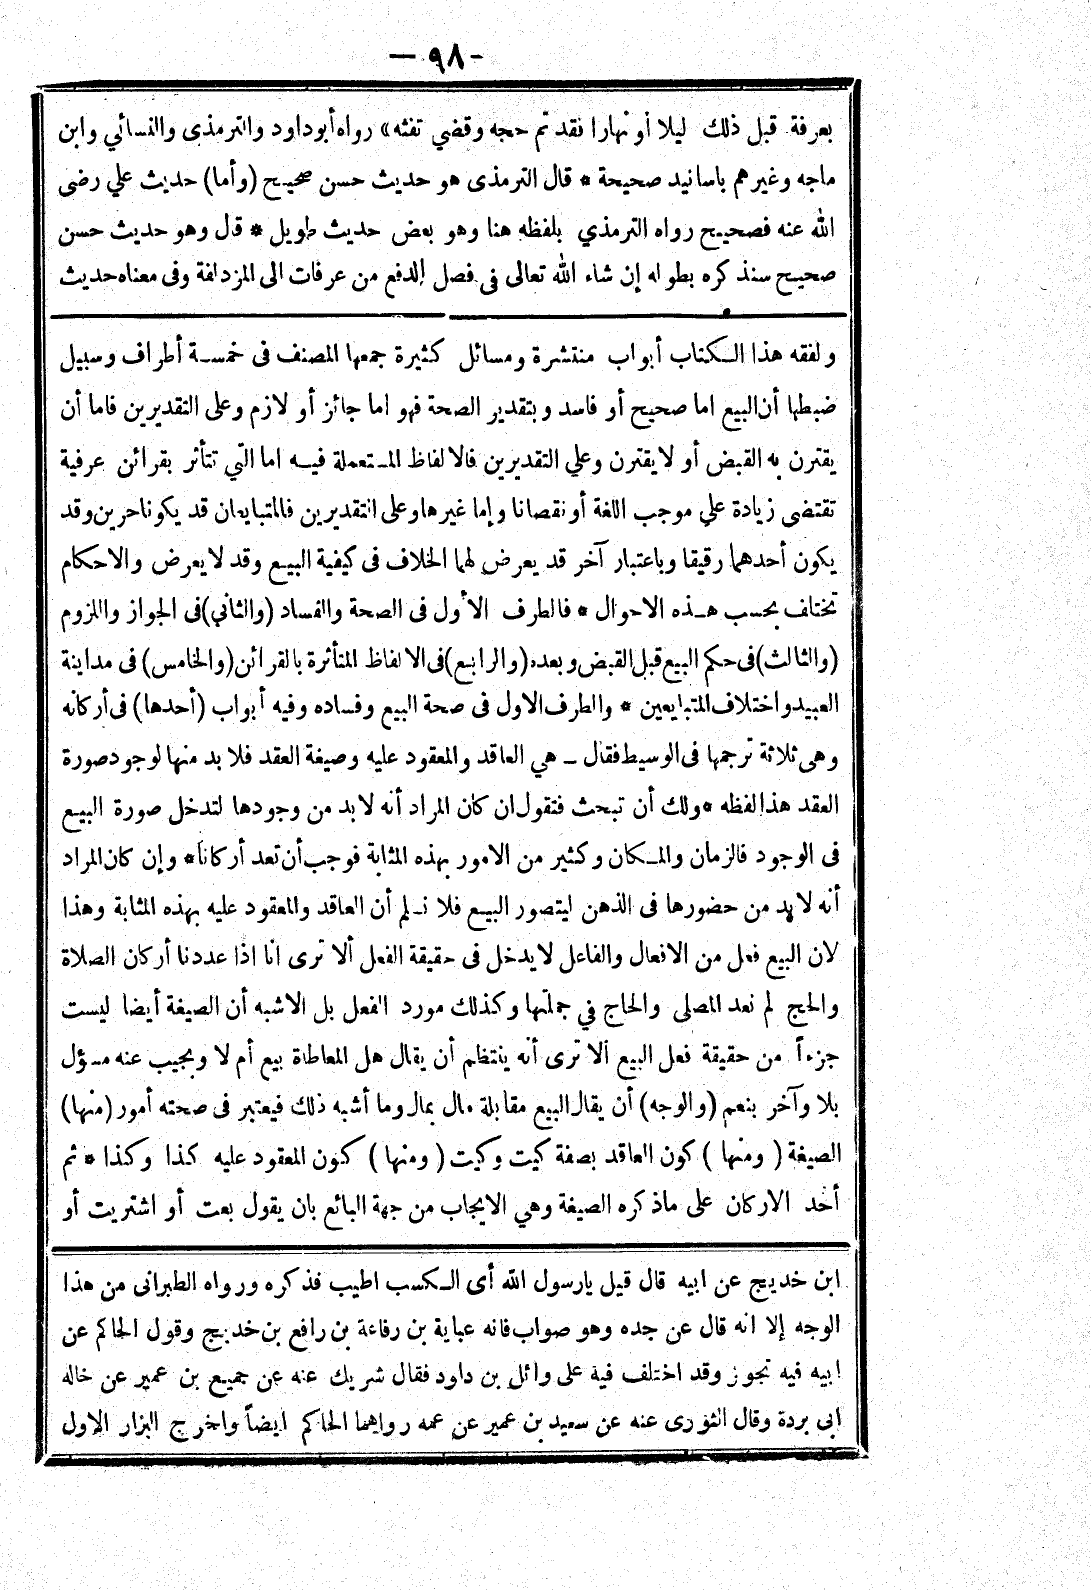 — ٩٨ -
بعرفة قبل ذلك ليلا أو نهارا فقد تم حجه وقضي تفثه » رواه أبو داود والترمذى والنسائي وابن
ماجه وغيرهم باسانيد صحيحة * قال الترمذى هو حديث حسن صحيح (وأما) حديث علي رضى
الله عنه فصحيح رواه الترمذي بلفظه هنا وهو بعض حديث طويل * قال وهو حديث حسن
صحيح سنذكره بطوله إن شاء الله تعالى فى فصل الدفع من عرفات الى المزدلفة وفى معناه حديث
ولفقه هذا الكتاب أبواب منتشرة ومسائل كثيرة جمعها المصنف فى خمسة أطراف وسبيل
ضبطها أن البيع اما صحيح أو فاسد وبتقدير الصحة فهو اما جائز أو لازم وعلى التقديرين فاما أن
يقترن به القبض أو لا يقترن وعلي التقديرين فالالفاظ المستعملة فيه اما التي تتأثر بقرائن عرفية
تقتضى زيادة علي موجب اللغة أو نقصانا وإما غيرها وعلى التقديرين فالمتبايعان قد يكونا حرين وقد
يكون أحدهما رقيقا وباعتبار آخر قد يعرض لهما الخلاف فى كيفية البيع وقد لا يعرض والاحكام
تختلف بحسب هذه الاحوال * فالطرف الأول فى الصحة والفساد (والثاني) فى الجواز واللزوم
(والثالث) فى حكم البيع قبل القبض وبعده (والرابع) فى الالفاظ المتأثرة بالقرائن (والخامس) فى مداينة
العبيد واختلاف المتبايعين * والطرف الاول فى صحة البيع وفساده وفيه أبواب (أحدها) فى أركانه
وهى ثلاثة ترجمها فى الوسيط فقال – هي العاقد والمعقود عليه وصيغة العقد فلا بد منها لوجود صورة
العقد هذا لفظه * ولك أن تبحث فتقول ان كان المراد أنه لا بد من وجودها لتدخل صورة البيع
فى الوجود فالزمان والمكان وكثير من الامور بهذه المثابة فوجب أن تعد أركانا * وإن كان المراد
أنه لابد من حضورها فى الذهن ليتصور البيع فلا نسلم أن العاقد والمعقود عليه بهذه المثابة وهذا
لان البيع فعل من الافعال والفاعل لا يدخل فى حقيقة الفعل ألا ترى انا اذا عددنا أركان الصلاة
والحج لم نعد المصلى والحاج في جملتها وكذلك مورد الفعل بل الاشبه أن الصيغة أيضا ليست
جزءاً من حقيقة فعل البيع ألا ترى أنه ينتظم أن يقال هل المعاطاة بيع أم لا ويجيب عنه مسؤل
بلا وآخر بنعم (والوجه) أن يقال البيع مقابلة مال بمال وما أشبه ذلك فيعتبر فى صحته أمور (منها)
الصيغة ( ومنها ) كون العاقد بصفة كيت وكيت ( ومنها ) كون المعقود عليه كذا وكذا * ثم
أحد الاركان على ما ذكره الصيغة وهي الايجاب من جهة البائع بان يقول بعت أو اشتريت أو
ابن خديج عن ابيه قال قيل يارسول الله أى الكسب اطيب فذكره ورواه الطبرانى من هذا
الوجه إلا انه قال عن جده وهو صواب فانه عباية بن رفاعة بن رافع بن خديج وقول الحاكم عن
ابيه فيه تجوز وقد اختلف فية على وائل بن داود فقال شريك عنه عن جميع بن عمير عن خاله
ابى بردة وقال الثورى عنه عن سعيد بن عمير عن عمه رواهما الحاكم ايضاً واخرج البزار الاول